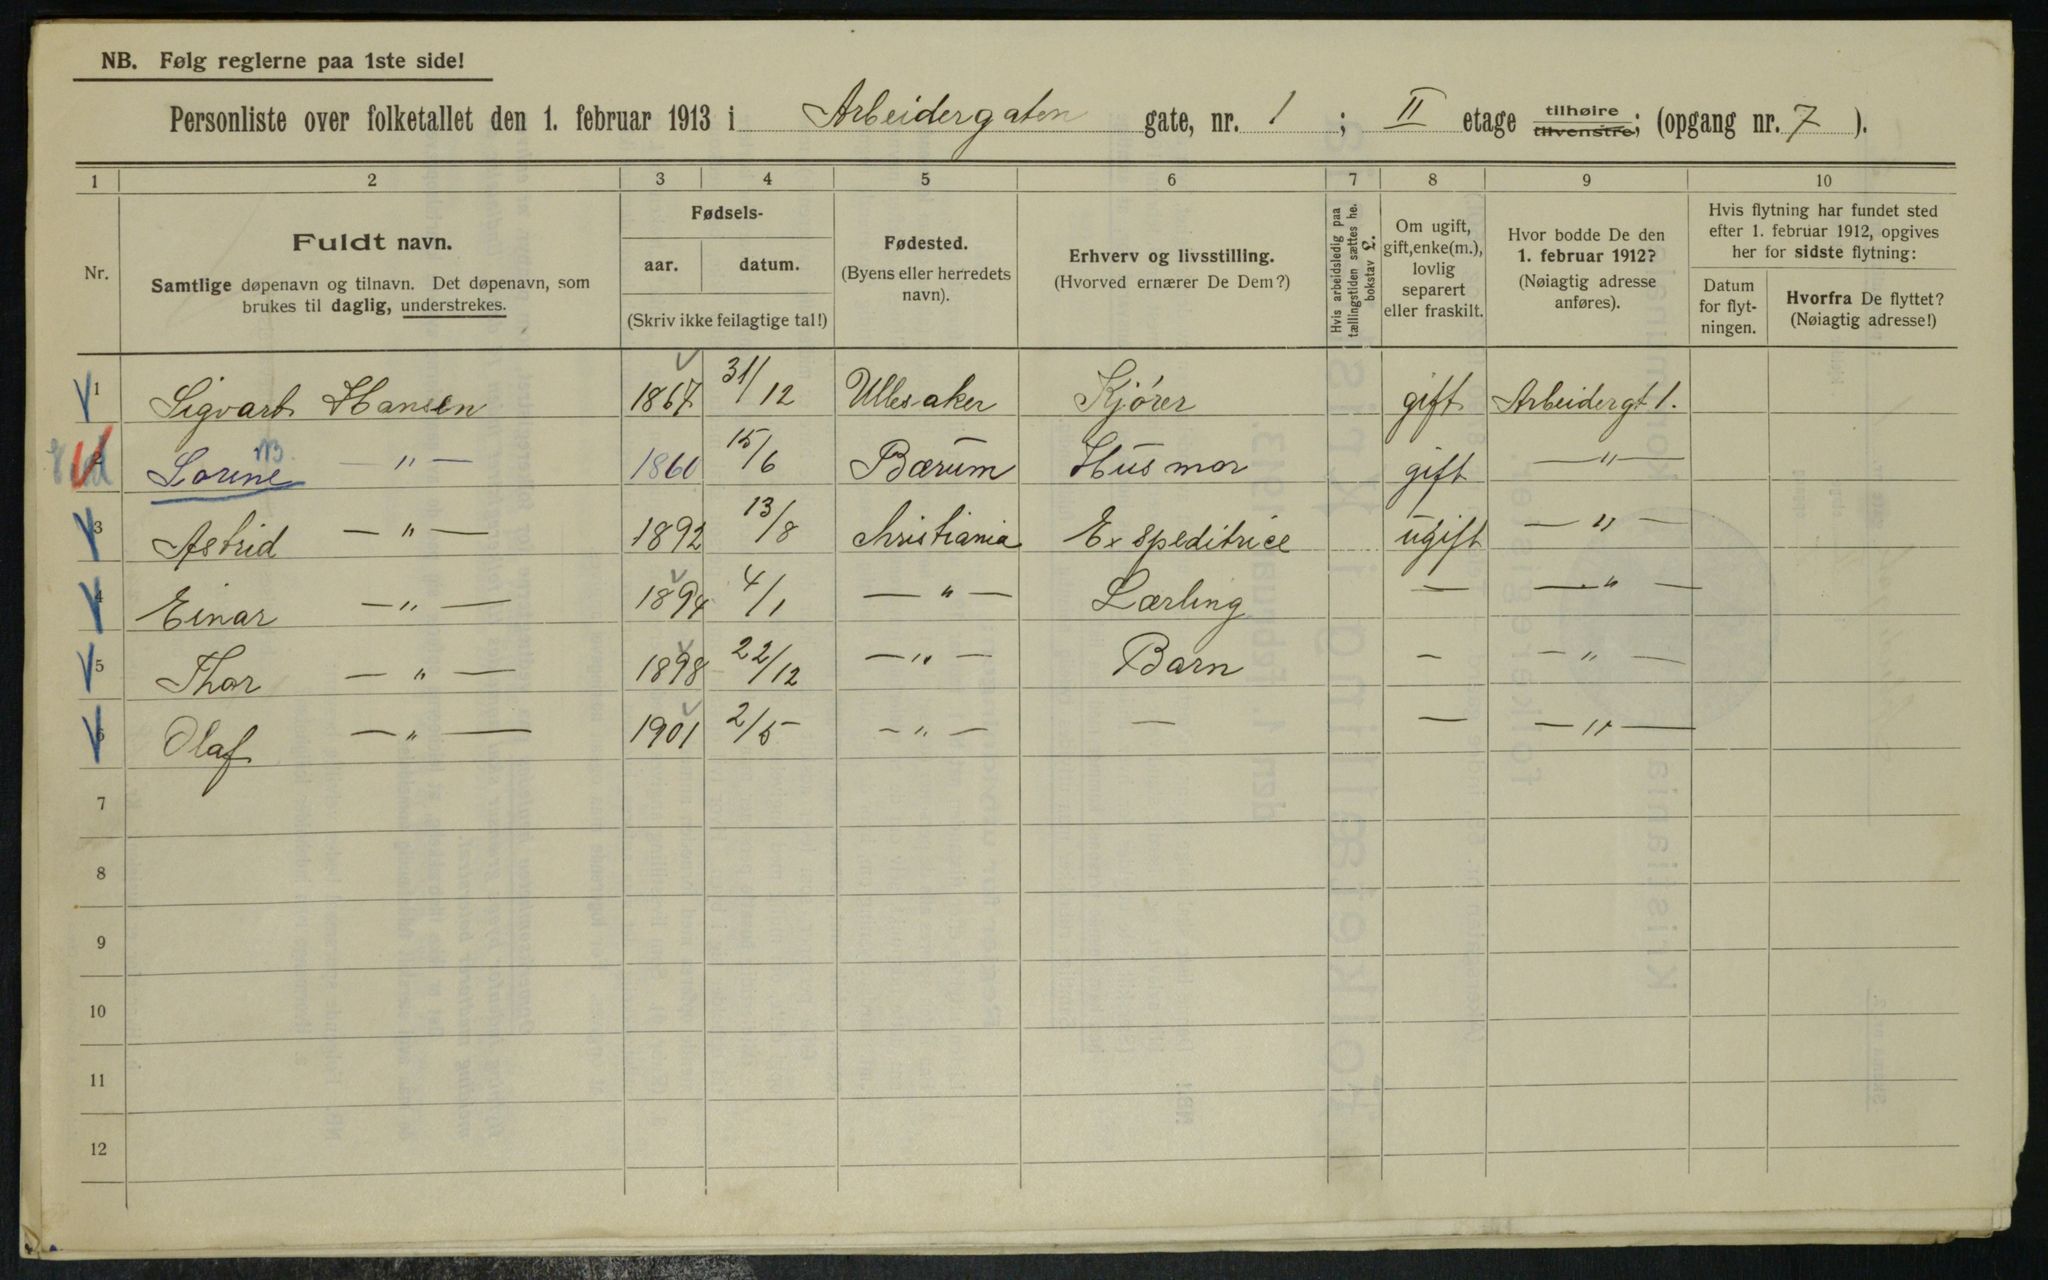 NB. Følg reglerne paa 1ste side!
Personliste over folketallet den 1. februar 1913 i Arbeidergaten gate, nr. 1 ; II etage tilhøire tilvenstre; (opgang nr. 7 ).
1 2 3 4 5 6 7 8 9 10
Nr.
Fuldt navn.
Samtlige døpenavn og tilnavn. Det døpenavn, som
brukes til daglig, understrekes.
Fødsels-
aar. datum.
(Skriv ikke feilagtige tal!)
Fødested.
(Byens eller herredets
navn).
Erhverv og livsstilling.
(Hvorved ernærer De Dem?)
Hvis arbeidsledig paa
tællingstiden sættes he.
bokstav L.
Om ugift,
gift, enke(m.),
lovlig
separert
eller fraskilt.
Hvor bodde De den
1. februar 1912?
(Nøiagtig adresse
anføres).
Hvis flytning har fundet sted
efter 1. februar 1912, opgives
her for sidste flytning:
Datum
for flyt-
ningen.
Hvorfra De flyttet?
(Nøiagtig adresse!)
1 Sigvart Hansen 1867 31/12 Ullesaker Kjører gift Arbeidergt 1.
2 Lorine — " — 1860 15/6 Bærum Husmor gift — " —
3 Astrid — " — 1892 13/8 Christiania Expeditrice ugift — " —
4 Einar — " — 1894 4/1 — " — Lærling — — " —
5 Thor — " — 1898 22/12 — " — Barn — — " —
6 Olaf — " — 1901 2/5 — " — — — — " —
7
8
9
10
11
12